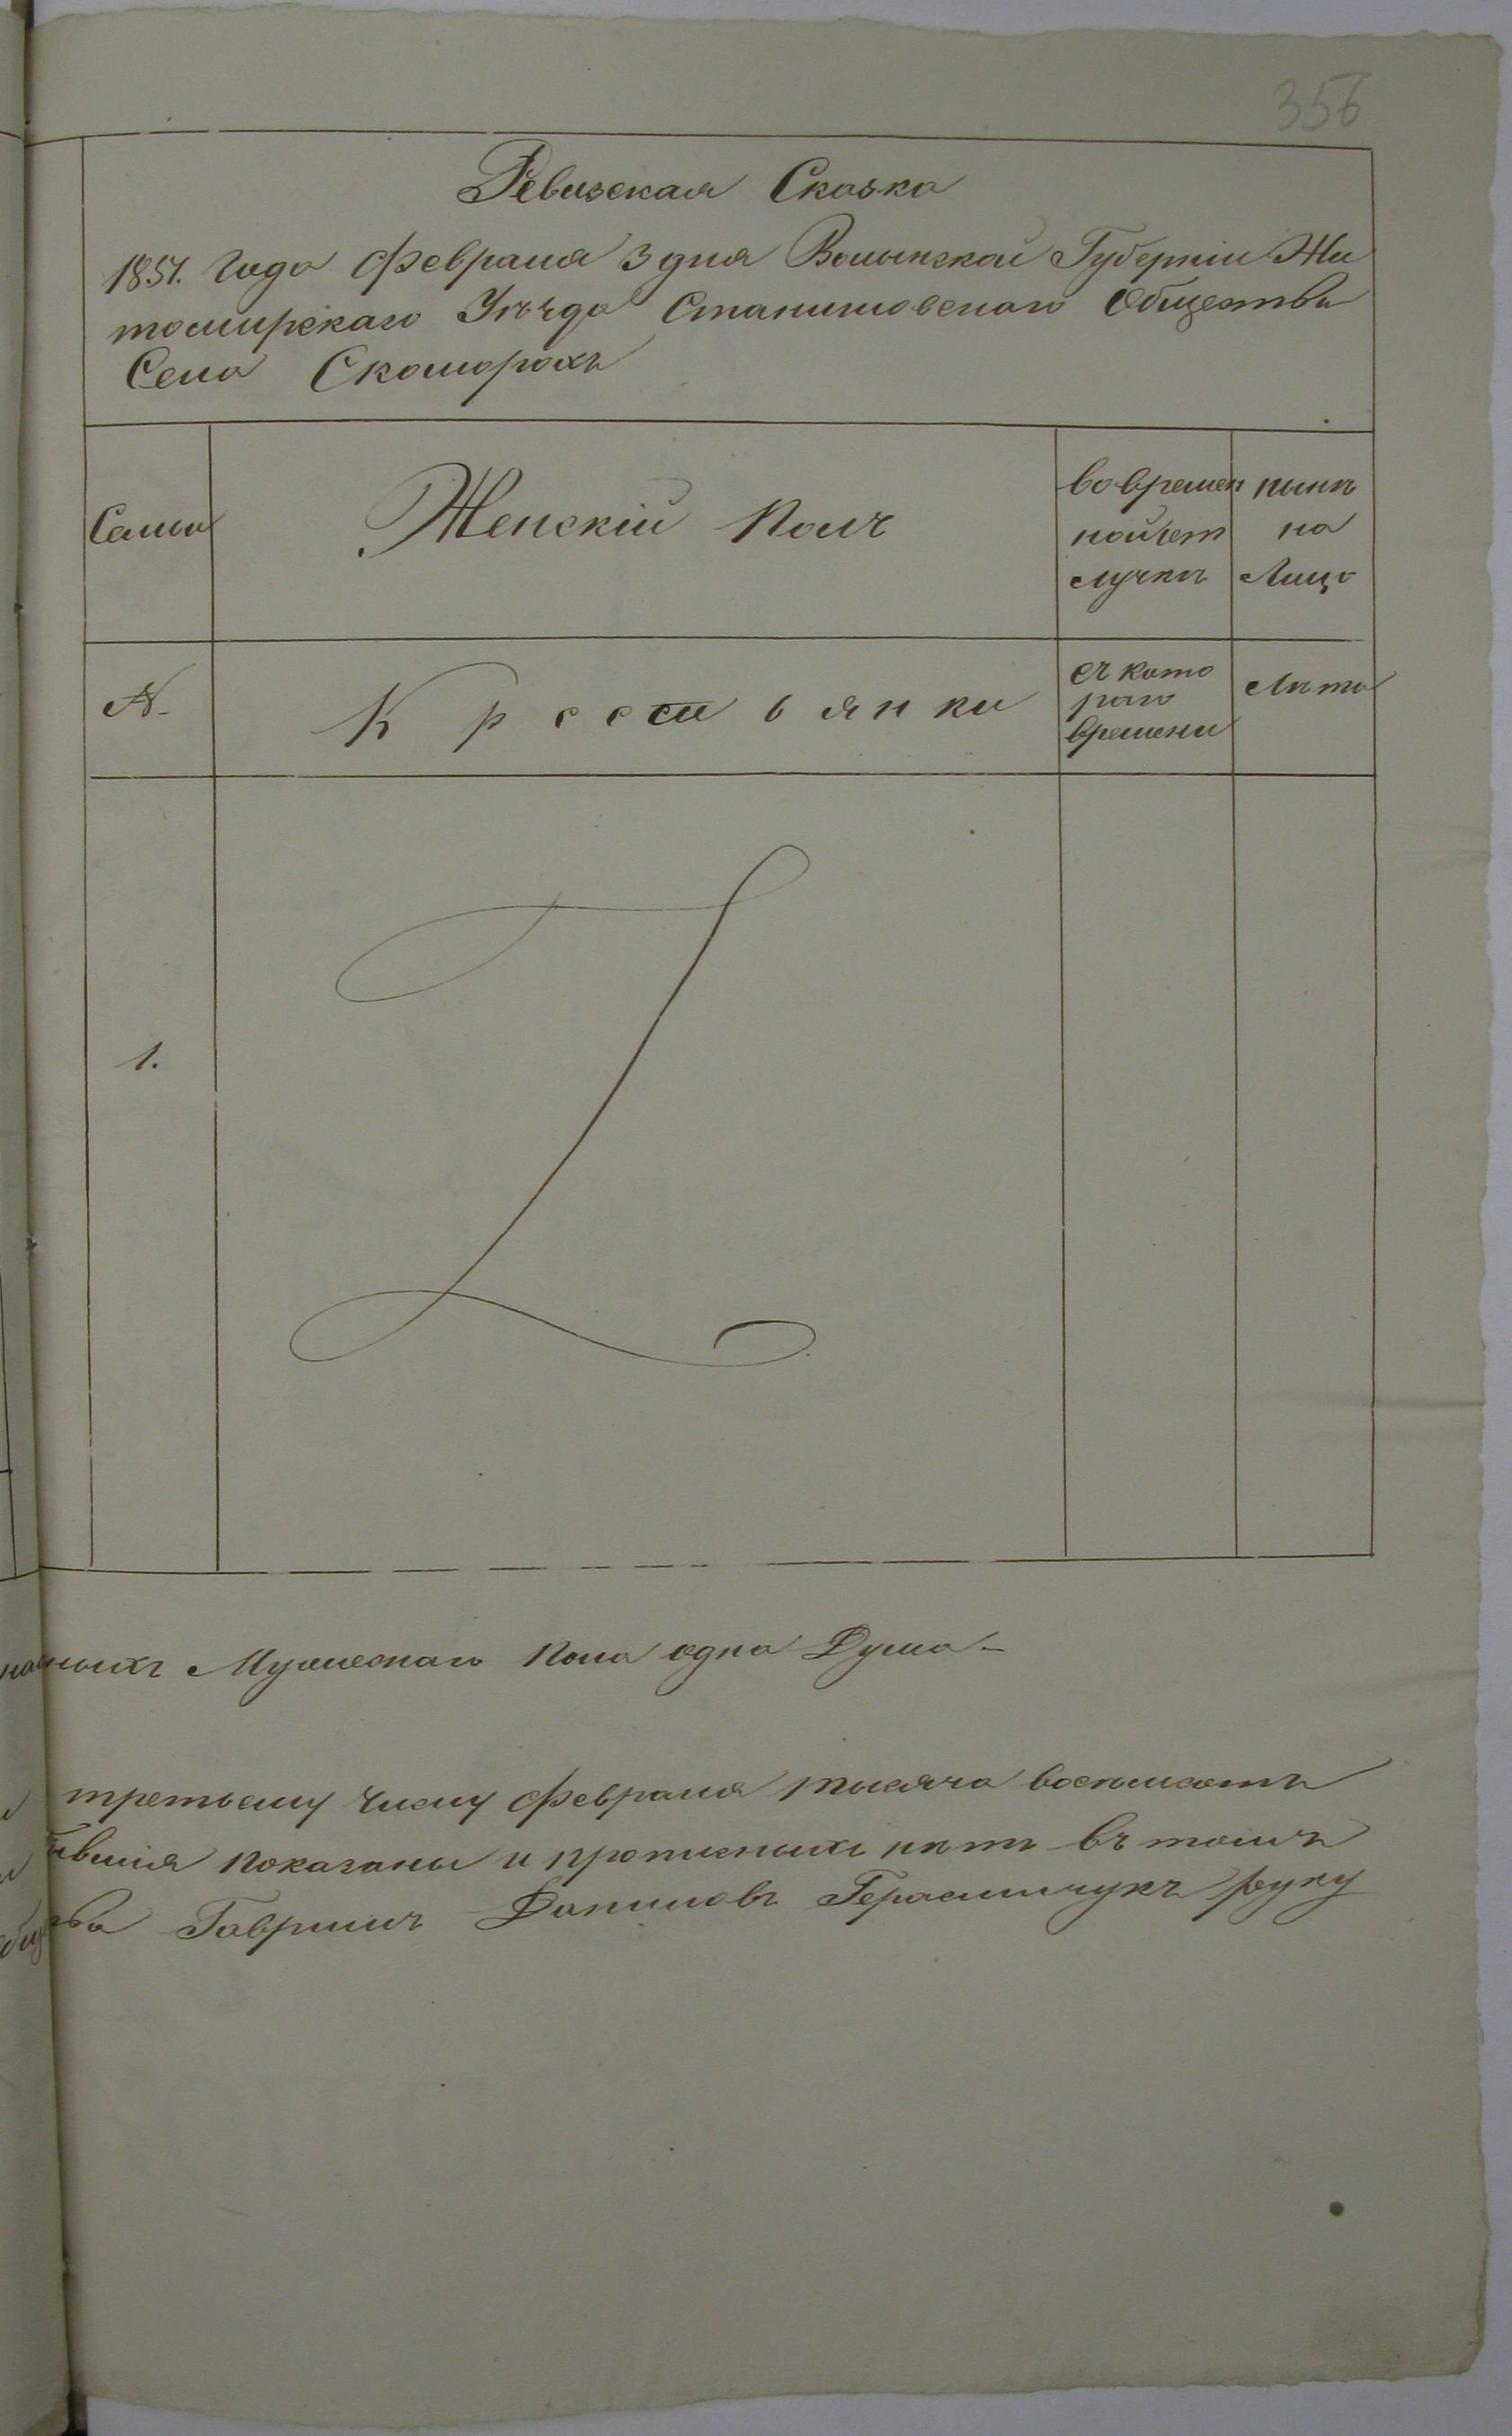 356
Ревизская Сказка
1851. Года Февраля 3 дня Волынской Губерніи Жи
томирскаго Уѣзда Станишовскаго Общества
Села Скоморохъ
Семьи
Женскій Полъ
во времен
ной от
лучкѣ
нынѣ
на
Лицо
N.
Крестьянки
съ кото
раго
времени
Лѣта
1.
наличныхъ Мужескаго пола одна Душа
третьему числу Февраля тысяча восемьсотъ
показаны и прописныхъ нѣтъ въ томъ
Гаврилъ Даниловъ Герасимчукъ руку